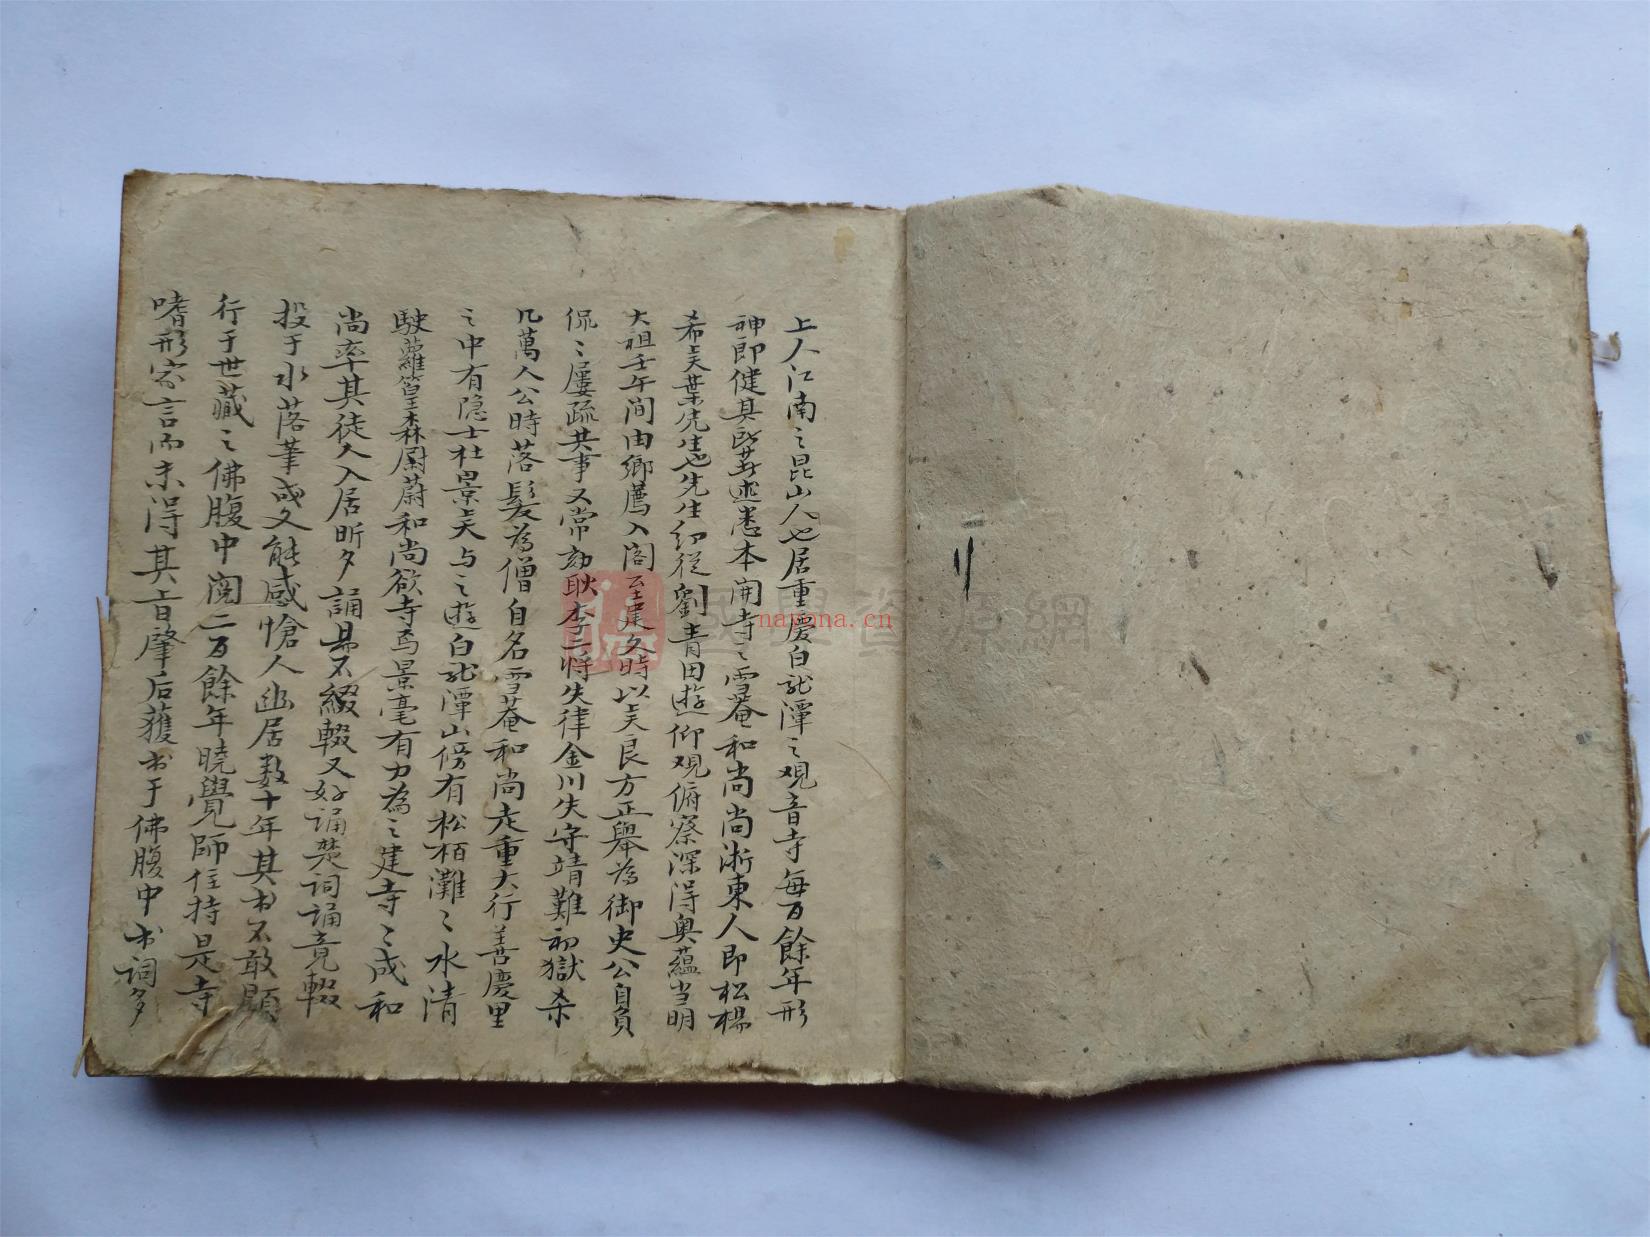 上人江南之昆山人也居重慶白龙潭之观音寺每百餘年形
神即健其所葬述悉本開寺之雪菴和尚尚浙東人即松楊
希吴葉先生也先生幼從劉青田遊仰观俯察深淂奥蘊当明
大祖壬午间由鄉薦入阁至建文時以吴良方正舉為御史公自負
侃侃屢疏共事又常劾耿李二將失律金川失守靖難初獄杀
几萬人公時落髮為僧自名雪菴和尚走重大行善慶里
之中有隐士杜景吴与之遊白龙潭山傍有松栢灘之水清
駛蘿篁森尉蔚和尚欲寺焉景毫有力為之建寺之成和
尚率其徒入居昕夕誦易不綴輟又好诵楚词诵竟輟
投于水落筆成文能感愴人幽居数十年其书不敢顕
行于世藏之佛腹中阅二百餘年曉覺師住持是寺
嗜形家言而未淂其旨肇后獲书于佛腹中书词多
國學資源網
nayona.cn